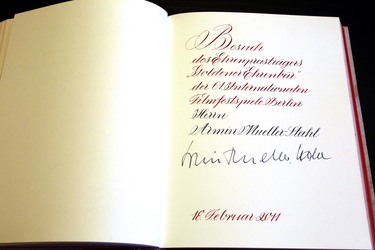 Besuch
des Ehrenpreisträgers
„Goldener Ehrenbär“
der 61. Internationalen
Filmfestspiele Berlin
Herrn
Armin Mueller-Stahl
Armin Mueller-Stahl
16. Februar 2011